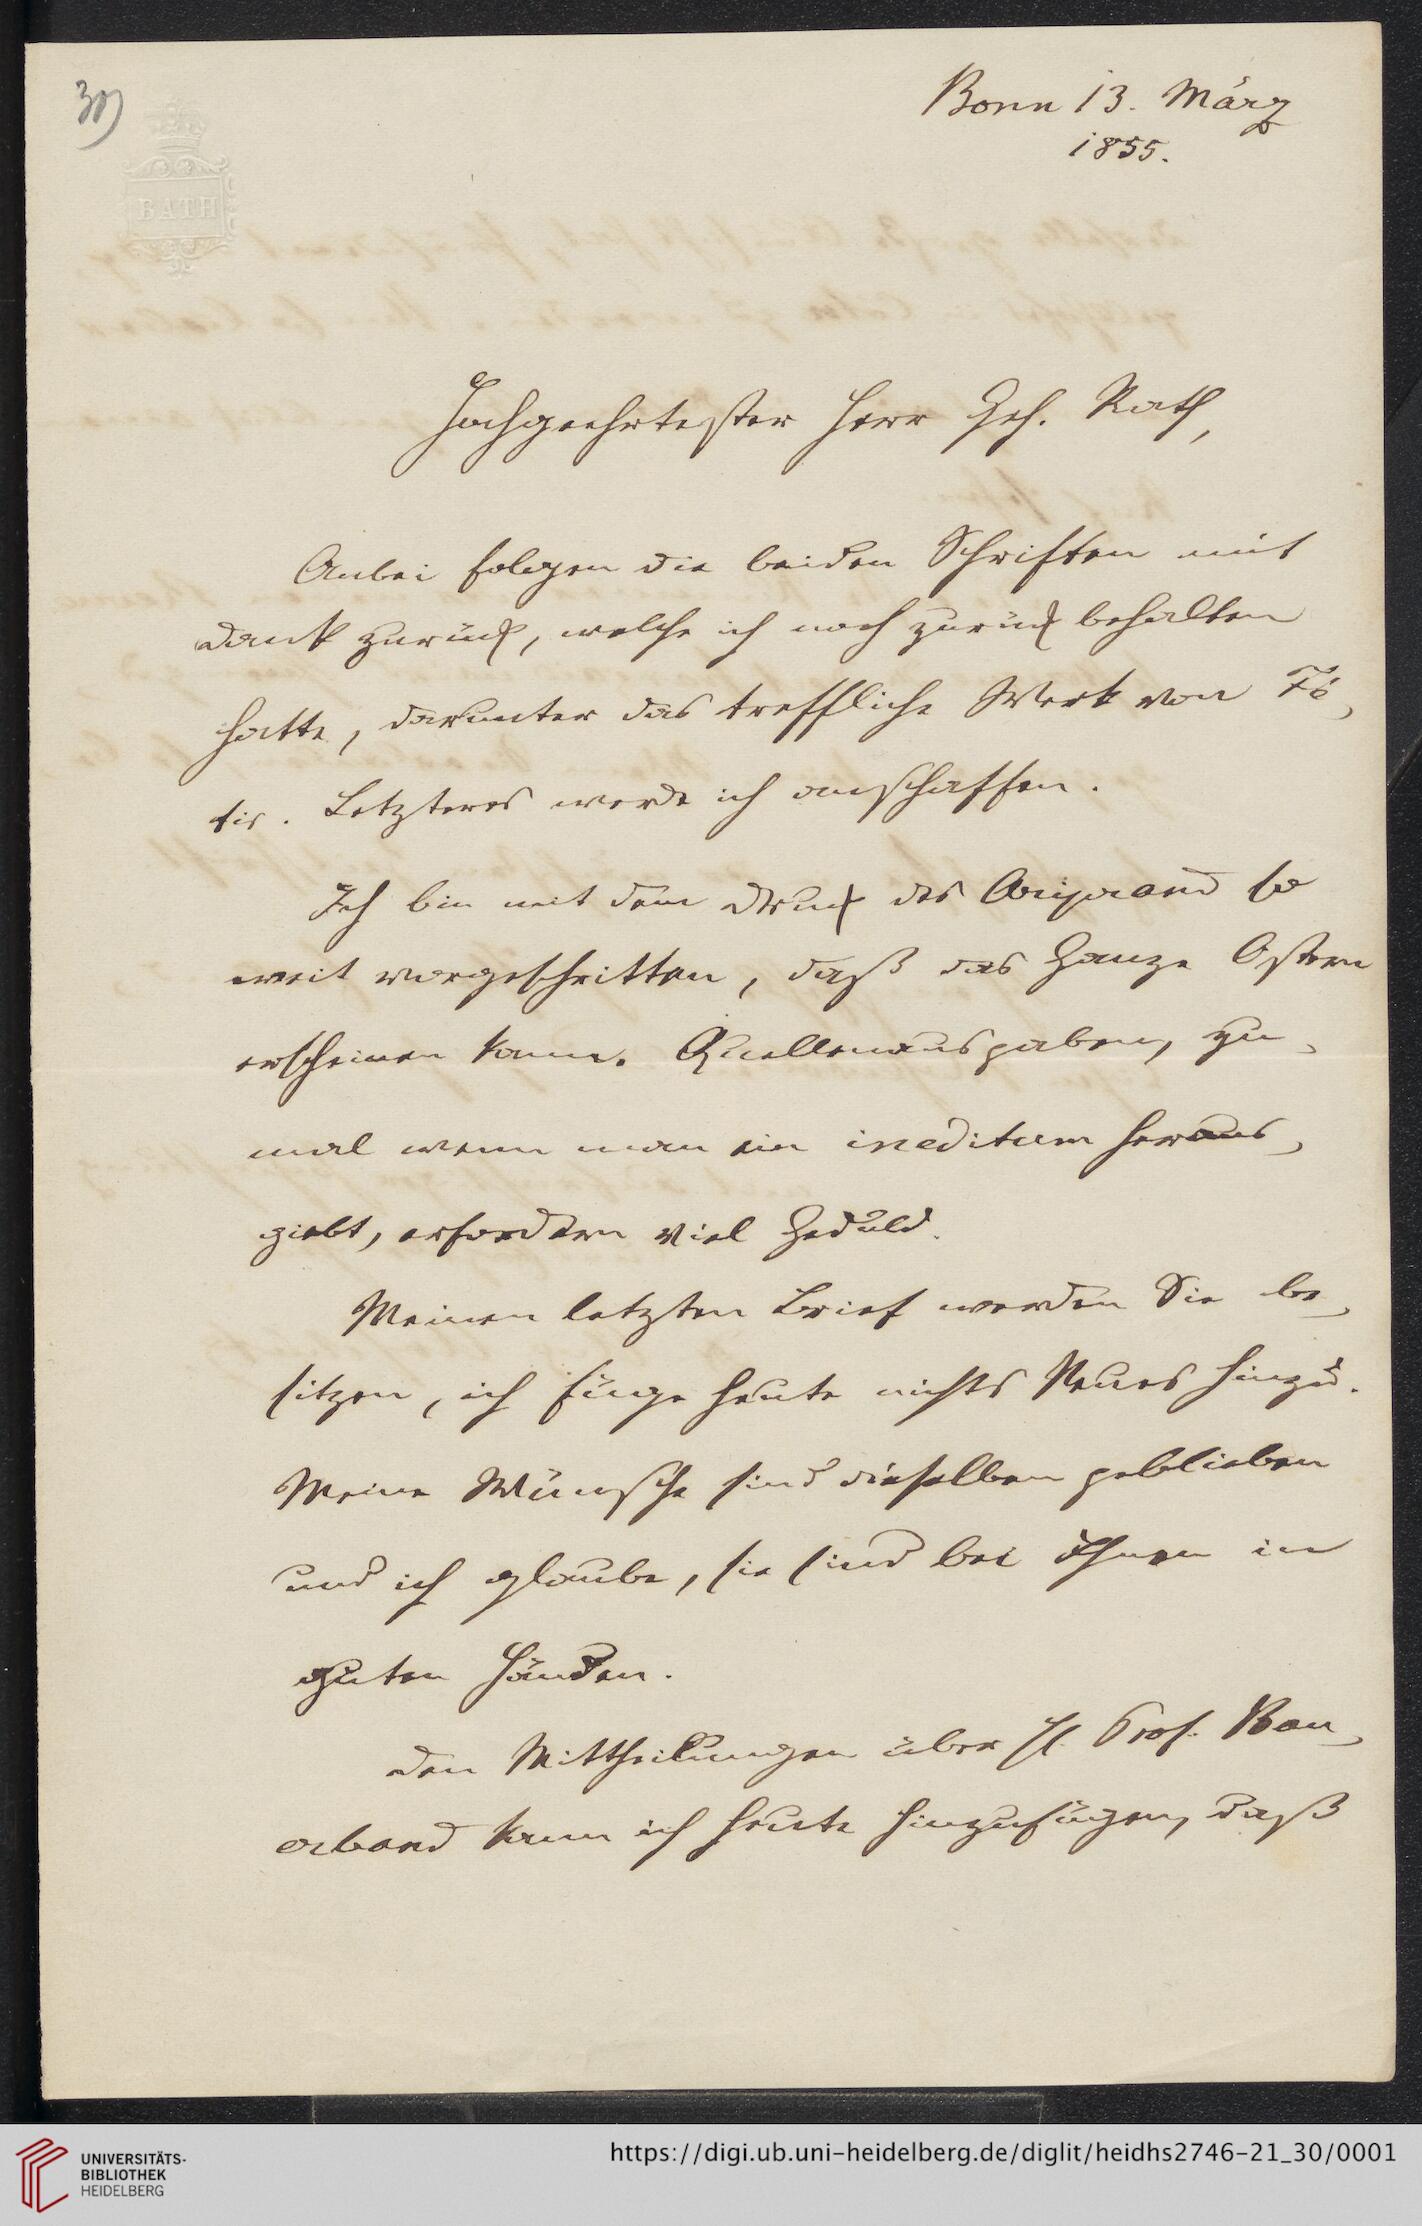 30)
BATH
Bonn 13. März
1855.
Hochgeehrtester Herr Geh. Rath,
Anbei folgen die beiden Schriften mit
Dank zurück, welche ich noch zurück behalten
hatte, darunter das treffliche Werk von Fö-
tis. Letzteres werde ich anschaffen.
Ich bin mit dem Druck des so
weit vorgeschritten, daß das Ganze Ostern
erscheinen kann. Quellenausgaben, zu-
mal wenn man ein ineditum heraus-
giebt, erfordern viel Geduld.
Meinen letzten Brief werden Sie be-
sitzen, ich füge heute nichts Neues hinzu.
Meine Wünsche sind dieselben geblieben
und ich glaube, sie sind bei Ihnen in
guten Händen.
Den Mittheilungen über H. Prof. Bau-
erband kann ich heute hinzufügen, daß
UNIVERSITÄTS-
BIBLIOTHEK
HEIDELBERG
https://digi.ub.uni-heidelberg.de/diglit/heidhs2746-21_30/0001